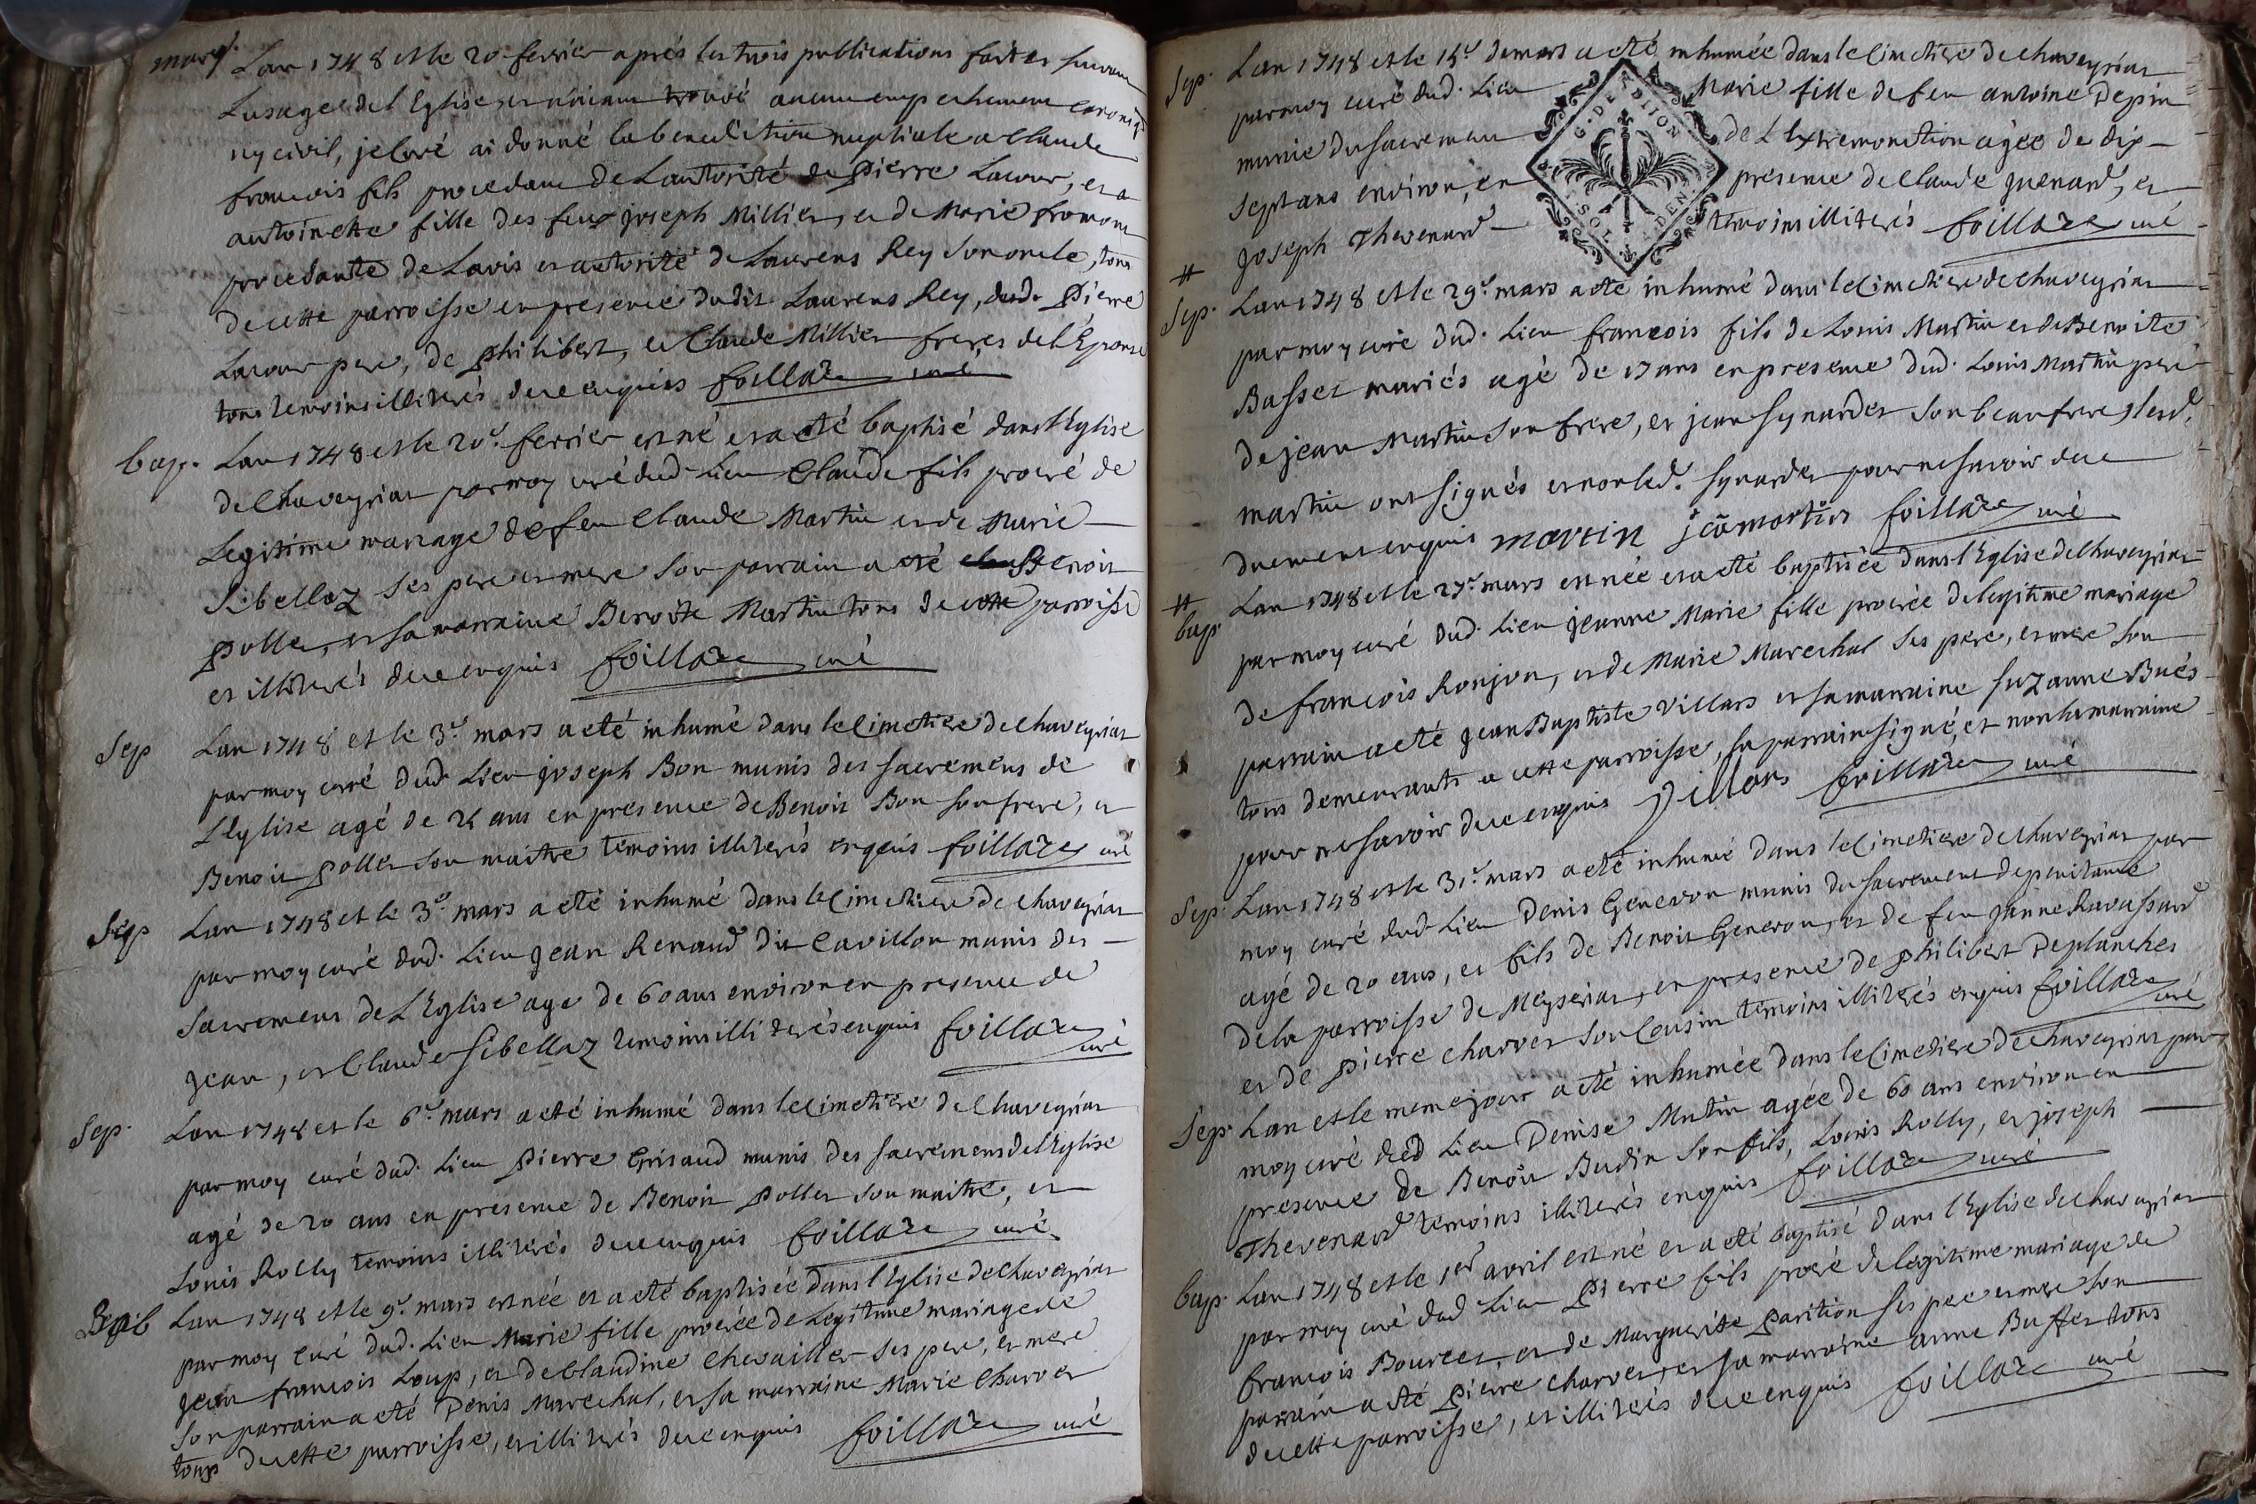 mary. Lan 1748 et le 20 fevrier aprés les trois publications faites suivant
Lusage de l'Eglise, et n'aiant trouvé aucun empechement canoniq
ny civil, je Curé ai donné la benediction nuptiale a Claude
francois fils procedant de Lautorité de Pierre Lacour, et a
antoinette fille des feux joseph Millier, et de Marie fromont
procedante de Lavis et autorité de Laurens Rey son oncle, tous
de cette parroisse en presence dudit Laurens Rey, dud. Pierre
Lacour pere, de Philibert, et Claude Millier freres de l'Epouse
tous temoins illiterés de ce enquis foillaze curé
bap. Lan 1748 et le 20e. fevrier est né et a eté baptisé dans l'Eglise
de Chaveyriat par moy curé dud. Lieu Claude fils procréé de
Legitime mariage de feu Claude Martin et de Marie
Sibellaz ses pere et mere son parrain a eté Benoit
Pollet, et sa marraine Benoite Martin tous de cette parroisse
et illiterés de ce enquis foillaze curé
Sep Lan 1748 et le 3e. mars a eté inhumé dans le Cimetiere de Chaveyriat
par moy curé dud. Lieu joseph Bon munis des sacremens de
L'Eglise agé de 25 ans en presence de Benoit Bon son frere, et
Benoit Pollet son maitre temoins illiterés enquis foillaze curé
Sep Lan 1748 et le 3e. mars a eté inhumé dans le Cimetiere de Chaveyriat
par moy curé dud. Lieu jean Renaud dit Cavillon munis des
sacremens de L'Eglise age de 60 ans environ en presence de
jean, et Claude Sibellaz temoins illiterés enquis foillaze curé
Sep. Lan 1748 et le 6e. mars a eté inhumé dans le Cimetiere de Chaveyriat
par moy curé dud. Lieu Pierre Grisaud munis des sacremens de l'Eglise
agé de 20 ans en presence de Benoit Pollet son maitre, et
Louis Rolly temoins illiterés de ce enquis foillaze curé
Bap Lan 1748 et le 9e. mars est née et a eté baptisée dans l'Eglise de Chaveyriat
par moy Curé dud. Lieu Marie fille procréée de Legitime mariage de
jean francois Loup, et de Claudine Chevailler ses pere, et mere
son parrain a eté Denis Marechal, et sa marraine Marie Charvet
tous de cette parroisse, et illiterés de ce enquis foillaze curé
Sep. Lan 1748 et le 15e. de mars a eté inhumée dans le Cimetiere de Chaveyriat
par moy curé dud. Lieu Marie fille de feu antoine Depin
munie du sacrement de L'Extremonction agée de dix
sept ans environ, en presence de Claude Guenard, et
joseph Thevenard temoins illiterés foillaze curé
G. DE ADITION
SOL DEN
Sep. Lan 1748 et le 29e. mars a eté inhumé dans le Cimetiere de Chaveyriat
par moy curé dud. Lieu francois fils de Louis Martin et de Benoite
Basset mariés agé de 17 ans en presence dud. Louis Martin pere
de jean Martin son frere, et jean Synardet son beaufrere, lesd.
martin ont signés et non led. Synardet pour ne savoir de ce
duement enquis martin jeãmartin foillaze curé
bap. Lan 1748 et le 27e. mars est née et a eté baptisée dans l'Eglise de Chaveyriat
par moy curé dud. Lieu jeanne Marie fille procréée de legitime mariage
de francois Ronjon, et de Marie Marechal ses pere, et mere son
parrain a eté jean Baptiste Villars et sa marraine suzanne Bués
tous demeurants a cette parroisse, le parrain signé, et non la marraine
pour ne savoir de ce enquis Villars foillaze curé
Sep. Lan 1748 et le 31e. mars a eté inhumé dans le Cimetiere de Chaveyriat par
moy curé dud. Lieu Denis Genevon munis du sacrement de penitance
agé de 20 ans, et fils de Benoit Genevon, et de feu janne Ravassard
de la parroisse de Meyseriat, en presence de Philibert Deplanches
et de Pierre Charvet son Cousin temoins illiterés enquis foillaze curé
Sep. Lan et le meme jour a eté inhumée dans le Cimetiere de Chaveyriat par
moy curé dud Lieu Denise Mutin agée de 60 ans environ en
presence de Benoit Budin son fils, Louis Rolly, et joseph
Thevenard temoins illiterés enquis foillaze curé
bap. Lan 1748 et le 1er avril est né et a eté baptisé dans l'Eglise de Chaveyriat
par moy curé dud. Lieu Pierre fils procréé de legitime mariage de
francois Bourcet, et de Marguerite Parition ses pere et mere son
parrain a eté Pierre Charvet, et sa marraine anne Buffet tous
de cette parroisse, et illiterés de ce enquis foillaze curé